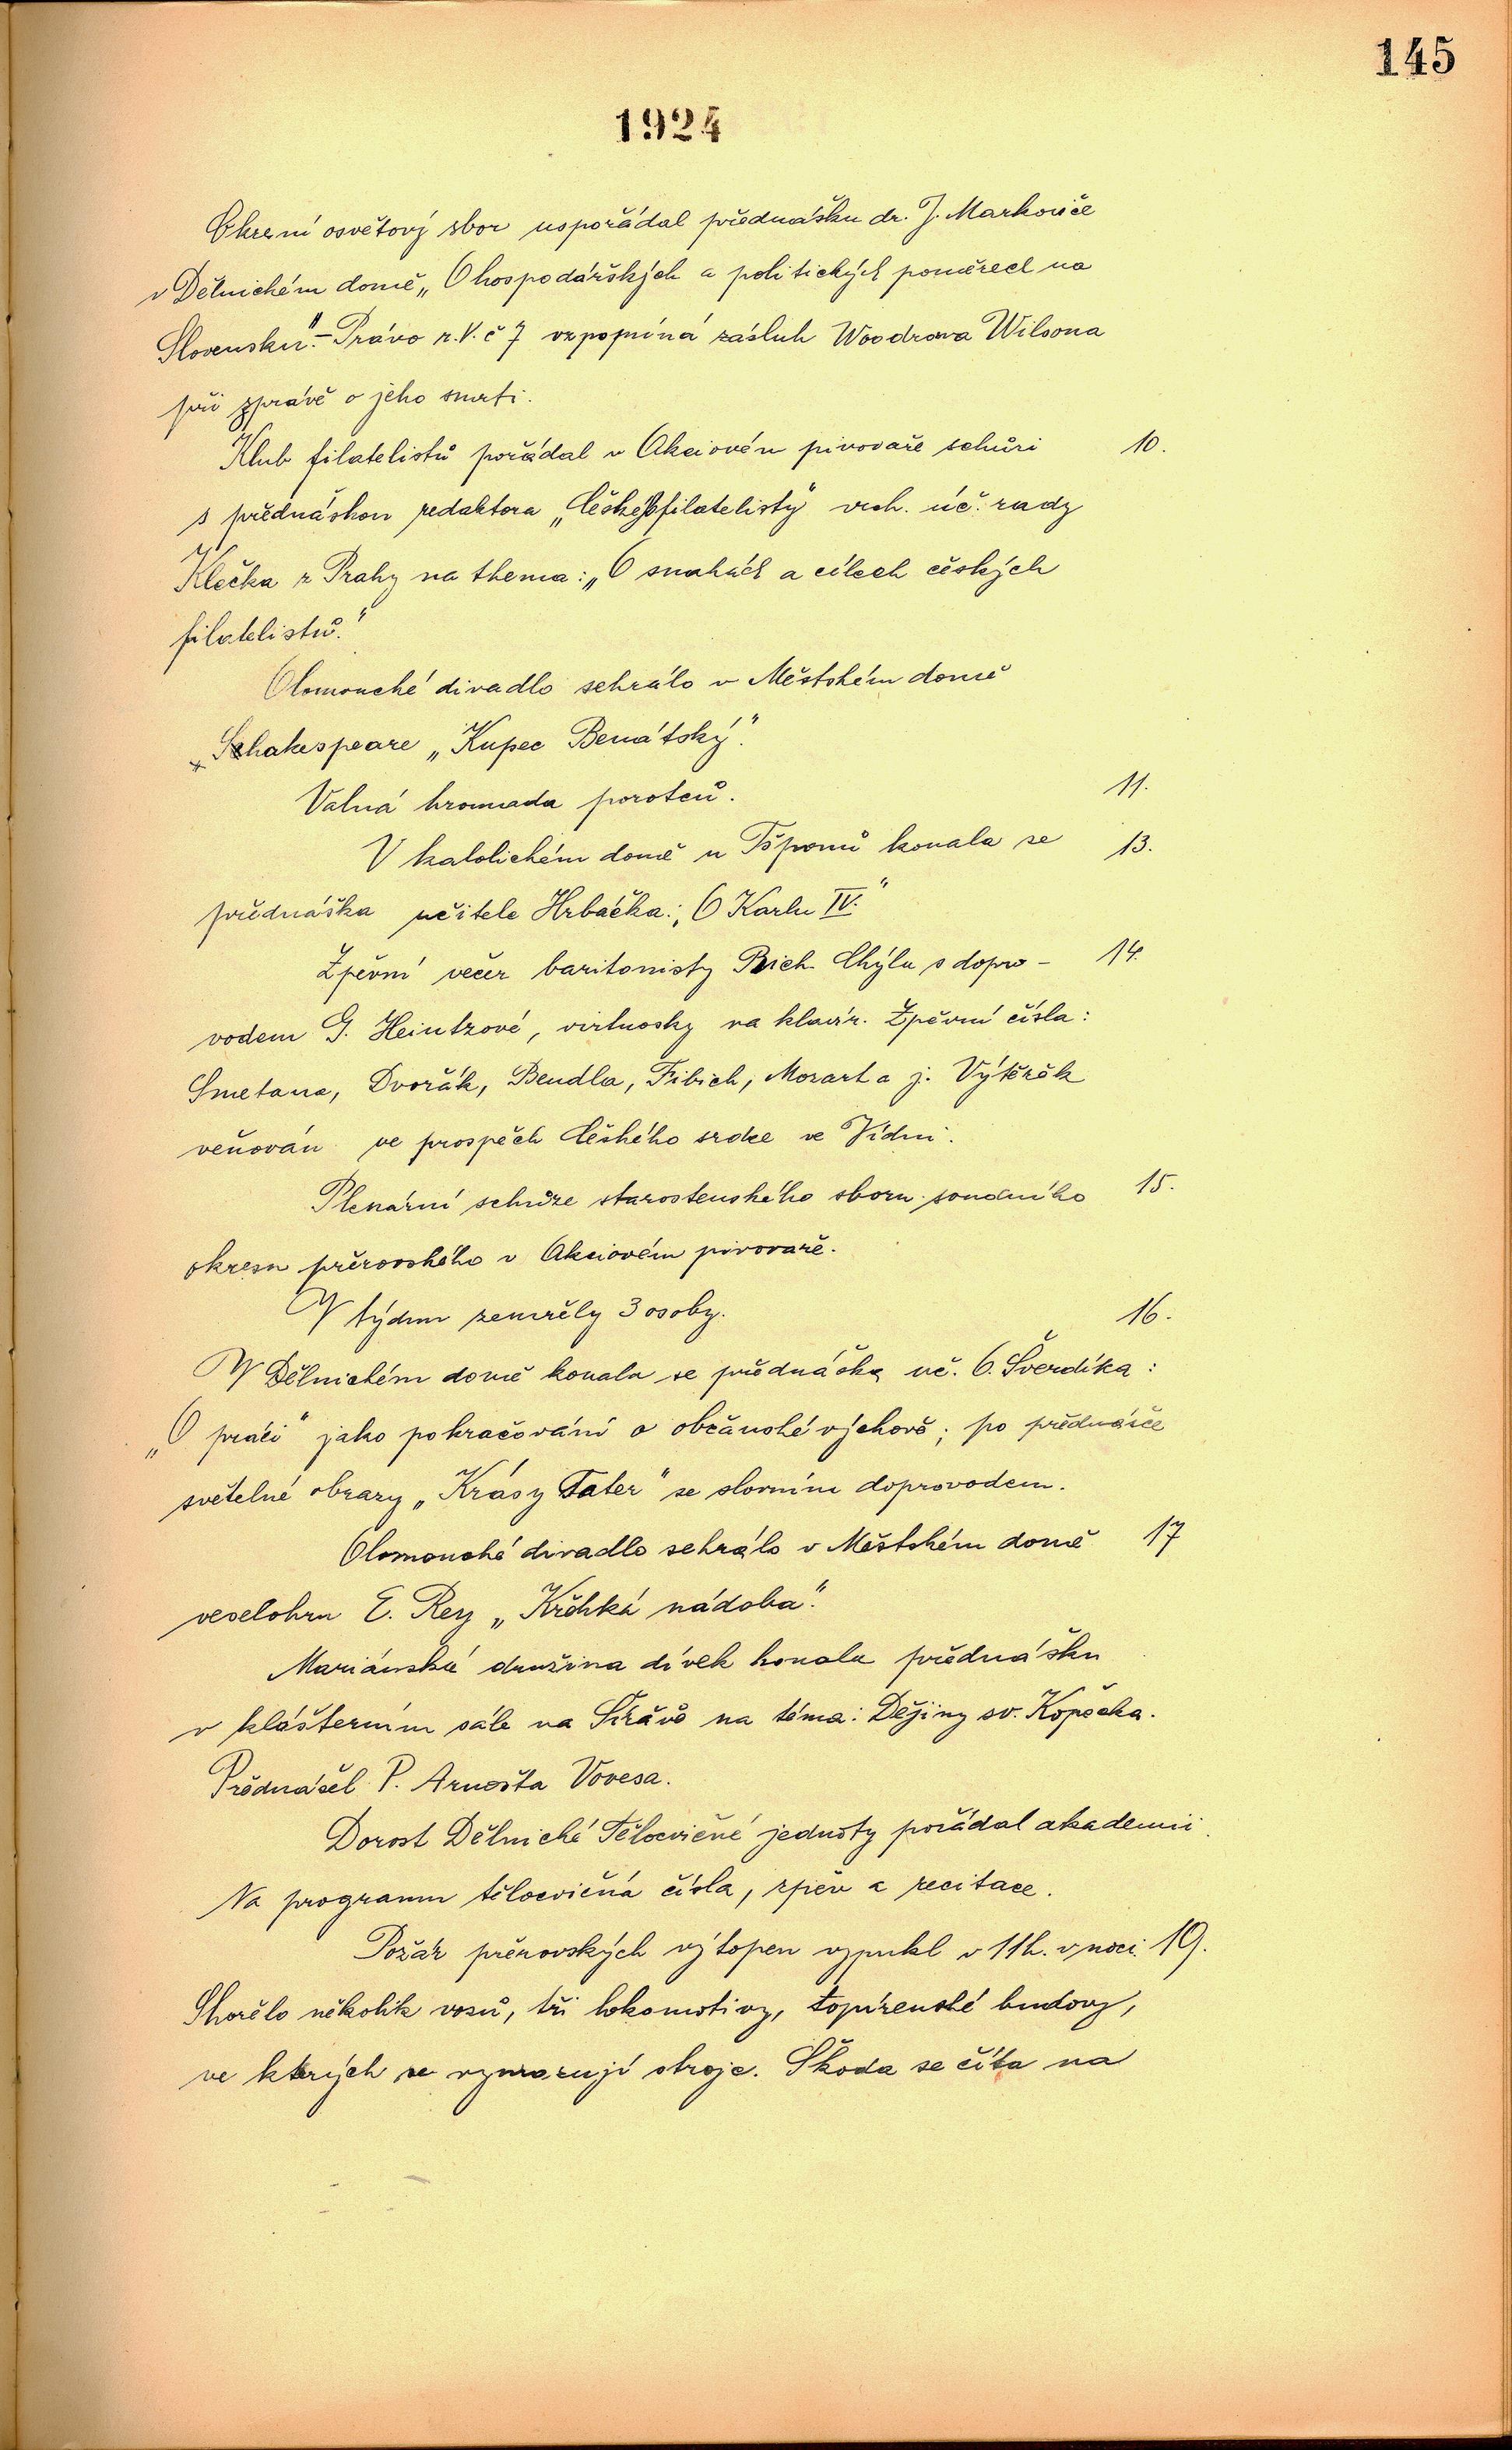 145
1924
Okresní osvětový sbor uspořádal přednášku dr. J. Markoviče
v Dělnickém domě „O hospodářských a politických poměrech na
Slovensku". – Právo r. V. č 7 vzpomíná zásluh Woodrowa Wilsona
při zprávě o jeho smrti.
Klub filatelistů pořádal v Akciovém pivovaře schůzi 10.
s přednáškou redaktora „Českého filatelisty" vrch. úč. rady
Klečka z Prahy na thema: „O snahách a cílech českých
filatelistů."
Olomoucké divadlo sehrálo v Městském domě
Schakespeare „Kupec Benátský".
Valná hromada porotců. 11.
V katolickém domě u Tšponů konala se 13.
přednáška učitele Hrbáčka: „O Karlu IV."
Zpěvní večer baritonisty Rich. Chýlu s dopro- 14.
vodem G. Heintzové, virtuosky na klavír. Zpěvní čísla:
Smetana, Dvořák, Bendla, Fibich, Mozart a j. Výtěžek
věnován ve prospěch Českého srdce ve Vídni.
Plenární schůze starostenského sboru soudního 15.
okresu přerovského v Akciovém pivovaře.
V týdnu zemřely 3 osoby. 16.
V Dělnickém domě konala se přednáška uč. O. Šverdíka:
„O práci" jako pokračování o občanské výchově; po přednášce
světelné obrazy „Krásy Tater" se slovním doprovodem.
Olomoucké divadlo sehrálo v Městském domě 17
veselohru E. Rey „Křehká nádoba".
Mariánská družina dívek konala přednášku
v klášterním sále na Šířavě na téma: Dějiny sv. Kopečka.
Přednášel P. Arnošta Vovesa.
Dorost Dělnické Tělocvičné jednoty pořádal akademii.
Na programu tělocvičná čísla, zpěv a recitace.
Požár přerovských výtopen vypukl v 11h. v noci. 19.
Shořelo několik vozů, tři lokomotivy, topírenské budovy,
ve kterých se vymazují stroje. Škoda se čítá na